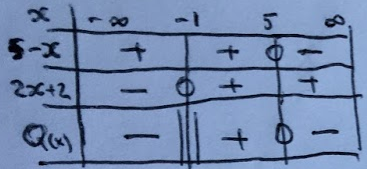 x -∞ -1 5 ∞
5-x + + 0 -
2x+2 - 0 + +
Q(x) - || + 0 -